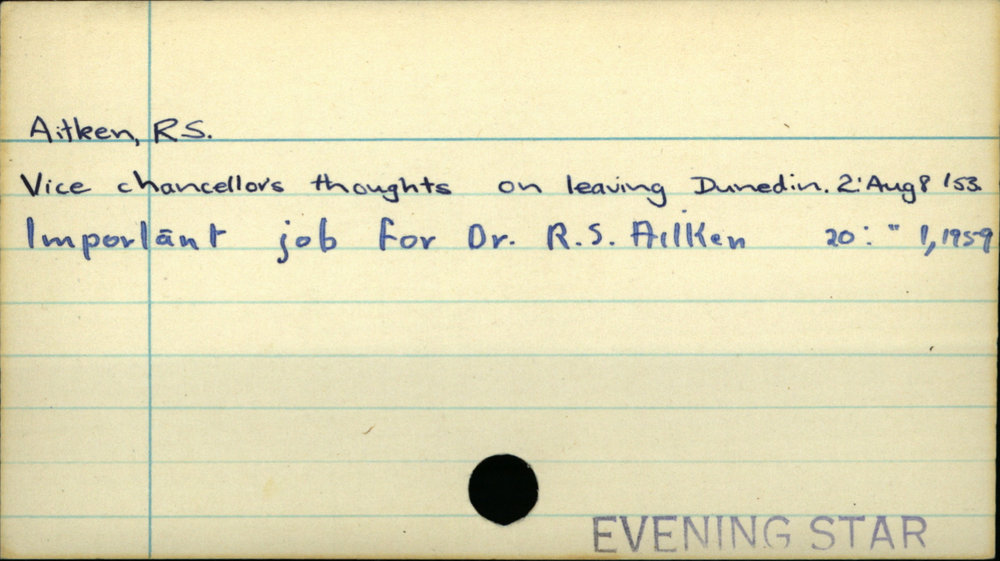 Aitken, R.S.
Vice chancellor's thoughts on leaving Dunedin. 2: Aug 8 '53
Important job for Dr. R.S. Aitken 20: " 1, 1959
EVENING STAR